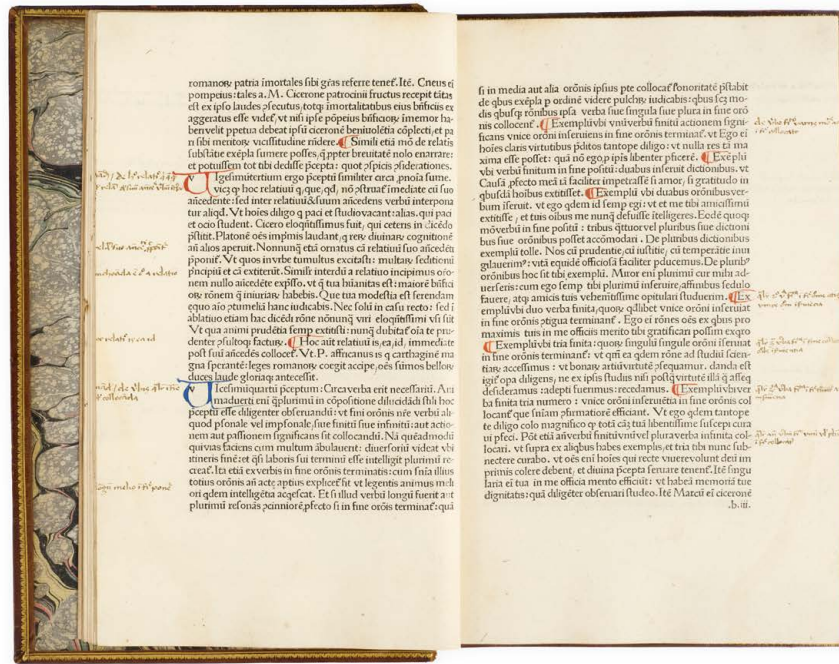 romanoꝝ patria ĩmortales sibi grãs referre teneť. Itẽ. Cneus eĩ
pompeius: tales a. M. Cicerone patrocinii fructus recepit tãtas
est ex ipso laudes ꝓsecutus, totqꝫ ĩmortalitatibus eius bñficiis ex
aggeratus esse videť, vt nisi ipse põpeius bñficioꝝ imemor ha-
benvelit ppetua debeat ipsũ ciceronẽ beniuolẽtia cõplecti, et pa
ri sibi meritoꝝ vicissitudine ñrdere. Simili etiã mõ de relatis
substãte exẽpla sumere posses, q̃ ppter breuitatẽ nolo enarrare:
et potuissem tot tibi dedisse ꝓcepta: quot ꝓspicis ꝓsiderationes.
Vigesimũtertium ergo ꝓceptũ similiter circa ꝓnoĩa sume.
viczꝫ ꝙ hoc relatiuũ q, que, qđ, nõ ꝓstruať imediate cũ suo
añcedente: sed inter relatiuũ & suum añcedens verbũ interpona
tur aliqđ. Vt hoĩes diligo q paci et studio vacant: alias, qui paci
et ocio student. Cicero eloq̃tissimus fuit, qui ceteris in dicẽdo
ꝓstitit. Platonẽ oẽs impĩmis laudant, q reꝝ diuinaꝝ cognitionẽ
añ alios aperuit. Nonnunq̃ etiã ornatus cã relatiuũ suo añcedẽti
pponiť. Vt quos invrbe tumultus excitasti: multaꝝ seditionũ
pncipiũ et cã extiterũt. Simili interdũ a relatiuo incipimus orõ-
nem nullo añcedẽte expsso. vt q̃ tua huãnitas est: maiorẽ bñfici
oꝝ rõnem q̃ iniuriaꝝ habebis. Que tua modestia est ferendam
equo aĩo ꝓtumeliã hanc iudicabis. Nec solũ in casu recto: sed ĩ
ablatiuo etiam hac dicẽdi rõne nõnunq̃ viri eloq̃tissimi vsi sũt
Vt qua animi prudẽtia semp extitisti: nunq̃ dubitať oĩa te pru-
denter ꝓsultoqꝫ facturꝝ. Hoc aũt relatiuũ is, ea, id, immediate
post suũ añcedẽs colloceť. Vt. P. affricanus is q carthaginẽ ma
gna sperantẽ: leges romanoꝝ coegit accipe, oẽs sũmos belloꝝ
duces laude gloriaqꝫ antecessit.
Vicesimũquartũ ꝓceptum: Circa verba erit necessariũ. Ani
maduerti enĩ q̃plurimũ in cõpositione dilucidãdi stili hoc
ꝓceptũ esse diligenter obseruandũ: vt fini orõnis nr̃e verbũ ali-
quod psonale vel impsonale, siue finitũ siue infinitũ: aut actio-
nem aut passionem significans sit collocandũ. Nã quẽadmodũ
qui vias faciens cum multum ãbulauerit: diuersoriũ videat vbi
itineris finẽ: et q̃si laboris sui terminũ esse intelligit plurimũ re-
creať. Ita etiã ex verbis in fine orõnis terminatis: cum snĩa illius
totius orõnis añ acte aptius expliceť sit vt legentis animus meli
ori qđem intelligẽtia acq̃escat. Et si illud verbũ longũ fuerit aut
plurimũ resonãs ꝓcinnior ẽ, ꝓfecto si in fine orõis terminať: quã
si in media aut alia orõnis ipsius pte collocať sonoritatẽ pstabit
de qbus exẽpla p ordinẽ videre pulchꝝ iudicabis: qbus scz mo-
dis qbusqꝫ rõnibus ipsa verba siue singula siue plura in fine orõ
nis collocenť. Exemplũ vbi vnũ verbũ finitũ actionem signi-
ficans vnice orõni inseruiens in fine orõnis terminať. vt Ego eĩ
hoĩes claris virtutibus pditos tantopere diligo: vt nulla res tã ma
xima esse posset: quã nõ ego p ipsis libenter pficerẽ. Exẽplũ
vbi verbũ finitum in fine positũ: duabus inseruit dictionibus. vt
Causã pfecto meã tã faciliter impetrasse si amor, si gratitudo in
qbusdã hoĩbus extitisset. Exemplũ vbi duabus orõnibus ver-
bum iseruit. vt ego qđem id semp egi: vt et me tibi amicissimũ
extitisse, et tuis oĩbus me nunq̃ defuisse itelligeres. Eodẽ quoqꝫ
mõ verbũ in fine positũ: tribus q̃ttuor vel pluribus siue dictioni
bus siue orõnibus posset accõmodari. De pluribus dictionibus
exemplũ tolle. Nos cũ prudentie, cũ iustitie, cũ temperãtie inui
gilauerimꝰ: vitã equidẽ officiosã faciliter pducemus. De pluribꝰ
orõnibus hoc sit tibi exemplũ. Miror eni plurimũ cur mihi ad-
uerseris: cum ego semp tibi plurimũ inseruire, affinibus sedulo
fauere, atqꝫ amicis tuis vehemẽtissime opitulari studuerim. Ex
emplũ vbi duo verba finita, quoꝝ qđlibet vnice orõni inseruiat
in fine orõnis ꝓtigua terminanť. Ego eĩ rõnes oẽs ex qbus pro
maximis tuis in me officiis merito tibi gratificari possim exqro
Exemplũ vbi tria finita: quoꝝ singulũ singule orõni iseruiat
in fine orõnis terminanť: vt qm̃ ea qđem rõne ad studiũ scien-
tiaꝝ accessimus: vt bonaꝝ artiũ virtutẽ psequamur. danda est
igiť opa diligens, ne ex ipsis studiis nisi postq̃ virtutẽ illã q̃ asseq
desideramus: adepti fuerimus: recedamus. Exemplũ vbi ver
ba finita tria numero: vnice orõni inseruiẽtia in fine orõnis col
locanť que sniam pfirmatiorẽ efficiant. Vt ego qđem tantope
te diligo colo magnifico ꝙ totã cãȝ tuã libentissime suscepi cura
ui pfeci. Põt etiã añ verbũ finitũ vnũ vel plura verba infinita col-
locari. vt supra ex aliqbus habes exemplis, et tria tibi nunc sub-
nectere curabo. vt oẽs eni hoĩes qui recte viuere volunt deũ im
primis colere debent, et diuina pcepta seruare tenenť. Itẽ singu
laria eĩ tua in me officia merito efficiũt: vt habeã memoriã tue
dignitatis: quã diligẽter obseruari studeo. Itẽ Marcũ eĩ ciceronẽ
.b.iii.